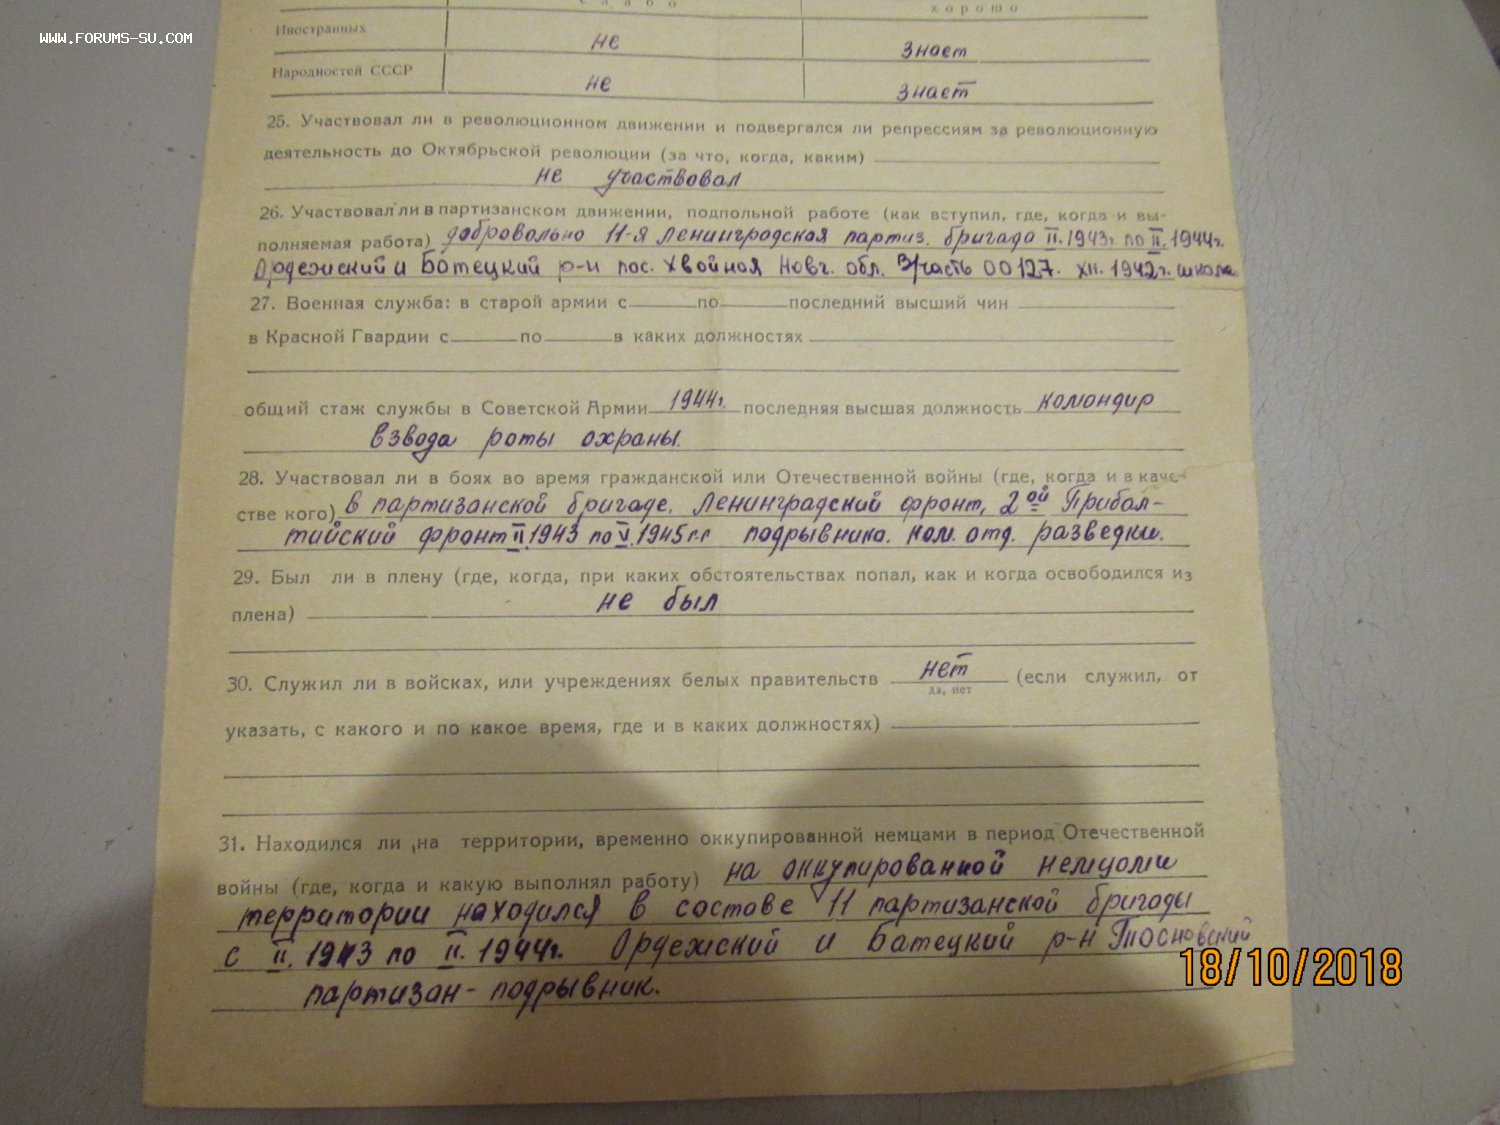 WWW.FORUMS-SU.COM
слабо хорошо
Иностранных не знает
Народностей СССР не знает
25. Участвовал ли в революционном движении и подвергался ли репрессиям за революционную
деятельность до Октябрьской революции (за что, когда, каким)
не участвовал
26. Участвовал ли в партизанском движении, подпольной работе (как вступил, где, когда и вы-
полняемая работа) добровольно 11-я Ленинградская партиз. бригада II.1943г. по II.1944г.
Ордежский и Батецкий р-н пос. Хвойная Новг. обл. В/часть 00127. XII. 1942г. школа
27. Военная служба: в старой армии с по последний высший чин
в Красной Гвардии с по в каких должностях
общий стаж службы в Советской Армии 1944г. последняя высшая должность командир
взвода роты охраны.
28. Участвовал ли в боях во время гражданской или Отечественной войны (где, когда и в каче-
стве кого) в партизанской бригаде. Ленинградский фронт, 2ой Прибал-
тийский фронт II.1943 по V.1945г.г подрывника. ком. отд. разведки.
29. Был ли в плену (где, когда, при каких обстоятельствах попал, как и когда освободился из
плена) не был
30. Служил ли в войсках, или учреждениях белых правительств нет (если служил, от
да, нет
указать, с какого и по какое время, где и в каких должностях)
31. Находился ли на территории, временно оккупированной немцами в период Отечественной
войны (где, когда и какую выполнял работу) на оккупированной немцами
территории находился в составе 11 партизанской бригады
с II. 1943 по II. 1944г. Ордежский и Батецкий р-н Тосновский
партизан - подрывник.
18/10/2018